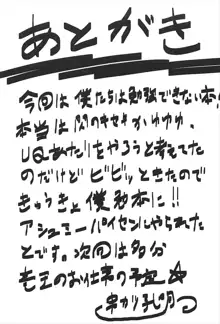 あとがき
今回は僕たちは勉強できない本
本当は閃のキセキかゆゆゆ、
UQあたりをやろうと考えてた
のだけどビビッときたので
きゅうきょ僕勉本に!!
アシュミーパイセンにやられた
とです。次回は多分
竜王のお仕事の予定☆